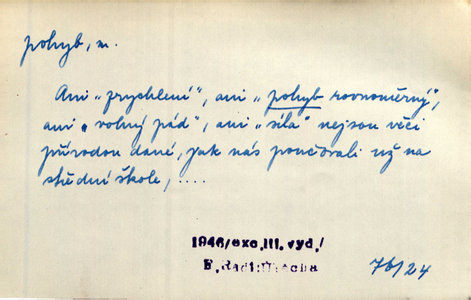 pohyb, m.
Ani "zrychlení", ani "pohyb rovnoměrný",
ani "volný pád", ani "síla" nejsou věci
přírodou dané, jak nás poučovali už na
střední škole, ....
1946/exc.III.vyd./
F.Radl:Útěcha
76/24